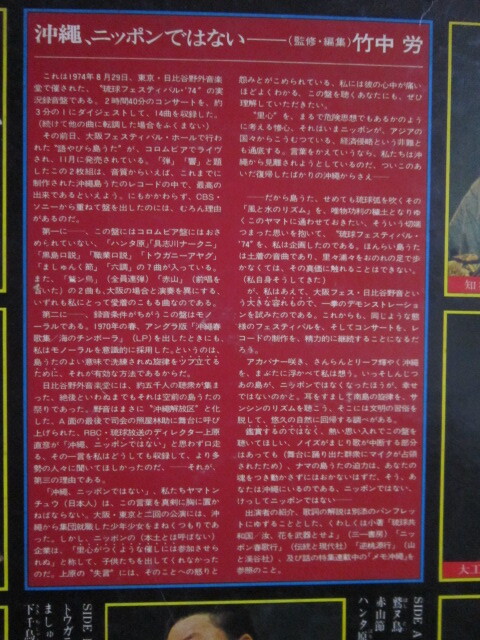 沖縄、ニッポンではない──(監修・編集)竹中 労
これは1974年8月29日、東京・日比谷野外音楽
堂で催された、“琉球フェスティバル'74”の実
況録音盤である。2時間40分のコンサートを、約
3分の1にダイジェストして、14曲を収録した。
(続けて他の曲に転調した場合をふくまない)
その前日、大阪フェスティバル・ホールで行わ
れた“語やびら島うた”が、コロムビアでライヴ
され、11月に発売されている。「弾」「響」と題
したこの2枚組は、音質からいえば、これまでに
制作された沖縄島うたのレコードの中で、最高の
出来であるといえよう。にもかかわらず、CBS・
ソニーから重ねて盤を出したのには、むろん理由
があるのだ。
第一に──、この盤にはコロムビア盤にはおさ
められていない、「ハンタ原」「具志川ナークニ」
「黒島口説」「職業口説」「トウガニーアヤグ」
「ましゅんく節」「六調」の7曲が入っている。
また、「嘉シ鳥」(全員連弾)「赤山」(前唱を
省いた)の2曲も、大阪の場合と演奏を異にする。
いずれも私にとって愛着のこもる曲なのである。
第二に──、録音条件がちがうこの盤はモノ
ーラルである。1970年の春、アングラ版「沖縄春
歌集／海のチンボーラ」(LP)を出したときにも、
私はモノーラルを意識的に採用した。というのは、
島うたのよい意味で洗練されぬ旋律をツブ立てる
ために、それが有効な方法であるからだ。
日比谷野外音楽堂には、約五千人の聴衆が集ま
った。絶後といわぬまでもそれは空前の島うたの
祭りであった。野音はまさに“沖縄解放区”と化
した。A面の最後で司会の照屋林助に舞台に呼び
上げられた、RBC・琉球放送のディレクター上原
直彦が「沖縄、ニッポンではない」と思わず口走
る、その一言を私はどうしても収録して、より多
勢の人々に聞いてほしかったのだ、──それが、
第三の理由である。
「沖縄、ニッポンではない」、私たちヤマトン
チュウ(日本人)は、この言葉を真剣に胸に置か
ねばならない。大阪・東京と二回の公演には、沖
縄から集団就職した少年少女をまねくつもりであ
った。しかし、ニッポンの(本土とは呼ばない)
企業は、「里心がつくような催しには参加させら
れぬ」と称して、子供たちを出してくれなかった
のだ。上原の“失言”には、そのことへの怒りと
怨みとがこめられている。私には彼の心中が痛い
ほどよくわかる、この盤を聴くあなたにも、ぜひ
理解していただきたい。
“里心”を、まるで危険思想でもあるかのよう
に考える憎心、それはいまニッポンが、アジアの
国々からこうむつている、経済侵略という非難と
も通底する。言葉をかえていうなら、私たちは沖
縄から見離されようとしているのだ、ついこのあ
いだ復帰したばかりの沖縄からさえ──
──だから島うた、せめても琉球弧を吹くその
「風と水のリズム」を、唯物功利の穢土となりゆ
くこのヤマトに通わせておきたい、そういう切端
つまった思いを抱いて、“琉球フェスティバル・
'74”を、私は企画したのである。ほんらい島うた
は土着の音曲であり、里々浦々をおのれの足で歩
かなくては、その真価に触れることはできない。
(私自身そうしてきた)
が、私はあえて、大阪フェス・日比谷野音とい
う大きな容れもので、一拳のデモンストレーショ
ンを試みたのである。これからも、同じような態
様のフェスティバルを、そしてコンサートを、レ
コードの制作を、精力的に継続することになるだ
ろう。
アカバナー咲き、さんらんとリーフ輝やく沖縄
を、まぶたに浮かべて私は想う。いっそしんじつ
あの島が、ニッポンではなくなったほうが、幸せ
ではないのかと。耳をすまし南島の旋律を、サ
ンシンのリズムを聴こう、そこには文明の習俗を
脱して、悠久の自然に回帰する調べがある。
鑑賞するのではなく、熱い思い入れでこの盤を
聴いてほしい、ノイズがまじり歌が中断する部分
はあっても(舞台に踊り出た群衆にマイクが占領
されたため)、ナマの島うたの迫力は、あなたの
魂をつき動かさずにはおかないはずだ。そう、あ
なたは沖縄にいるのである、ニッポンではない、
けっしてニッポンではない──
出演者の紹介、歌詞の解説は別添のパンフレッ
トにゆずることとした、くわしくは小著「琉球共
和国／汝、花を武器とせよ」(三一書房)「ニッ
ポン春歌行」(伝統と現代社)「逆桃源行」(山
と渓谷社)、及び話の特集連載中の「メモ沖縄」を
参照のこと。
知
大工
SIDE A
鷲ヌ鳥
赤山節
ハンタ原
SIDE
トウガ
ましゅ
ド千鳥